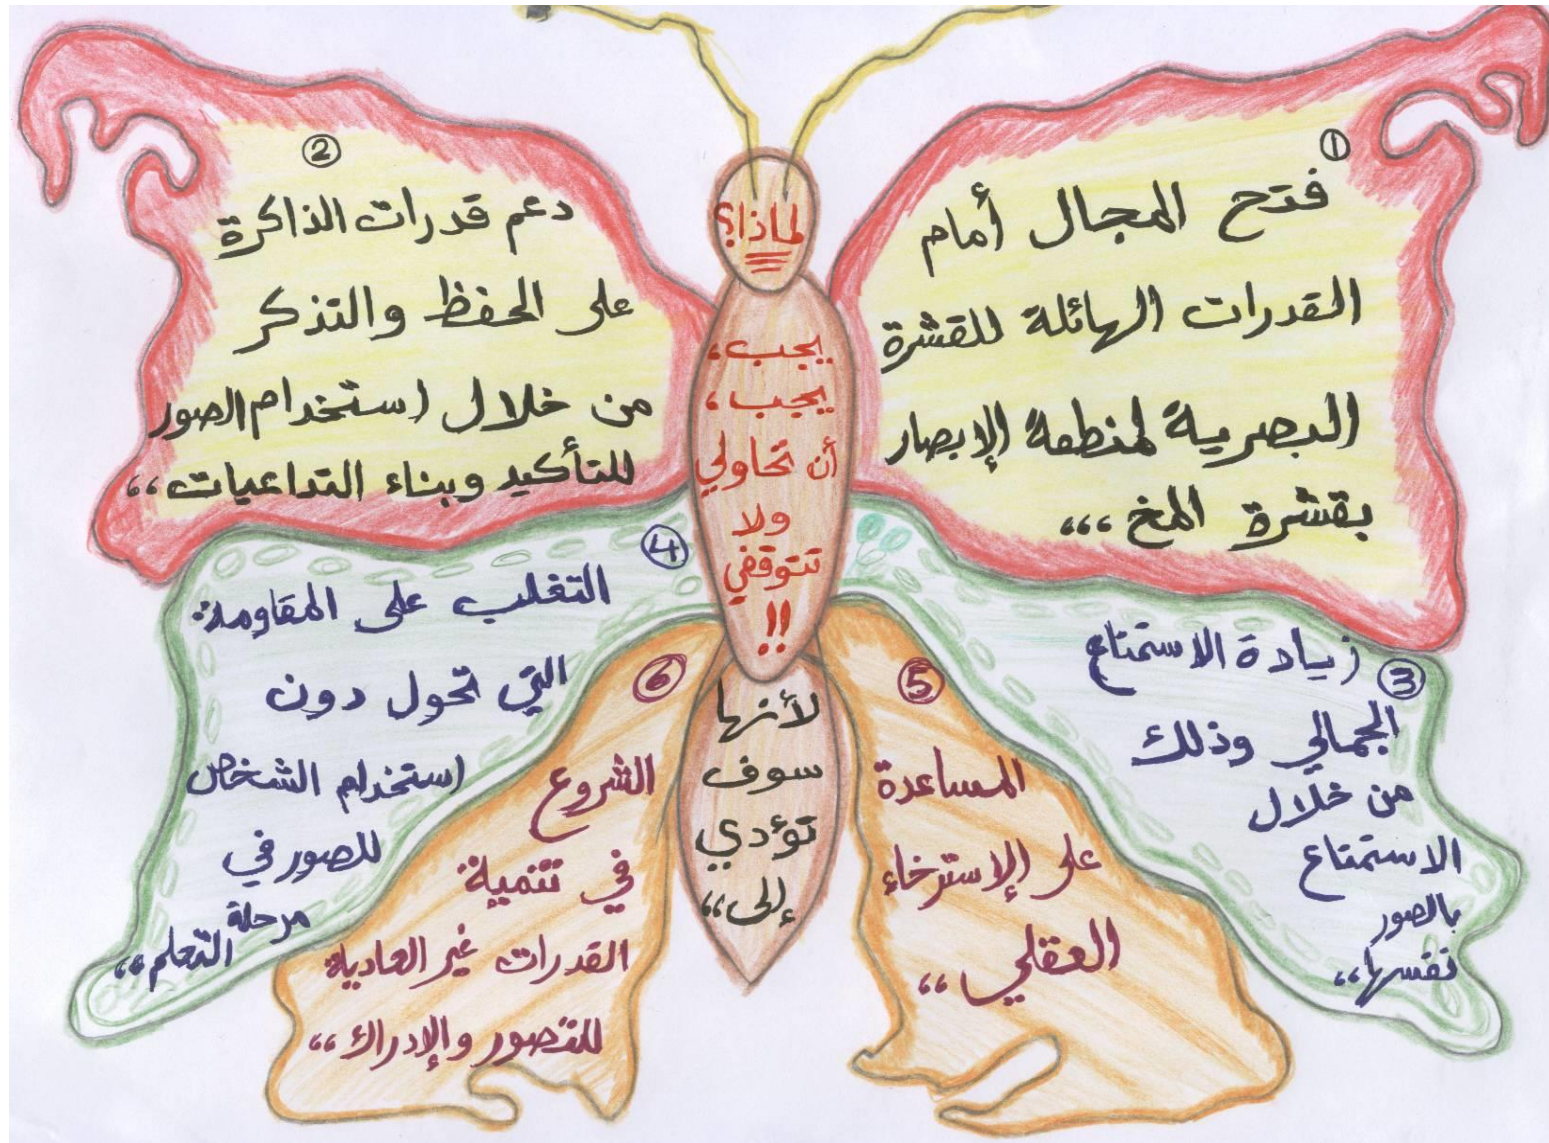 لماذا؟
يجب،
يجب،
أن تحاولي
ولا
تتوقفي
!!
لأنها
سوف
تؤدي
إلى،،
①
فتح المجال أمام
القدرات الهائلة للقشرة
البصرية لمنطقة الإبصار
بقشرة المخ،،،
②
دعم قدرات الذاكرة
على الحفظ والتذكر
من خلال استخدام الصور
للتأكيد وبناء التداعيات،،
③
زيادة الاستمتاع
الجمالي وذلك
من خلال
الاستمتاع
بالصور
نفسها،،
④
التغلب على المقاومة
التي تحول دون
استخدام الشخص
للصور في
مرحلة
التعلم،،
⑤
المساعدة
على الإسترخاء
العقلي،،
⑥
الشروع
في تنمية
القدرات غير العادية
للتصور والإدراك،،